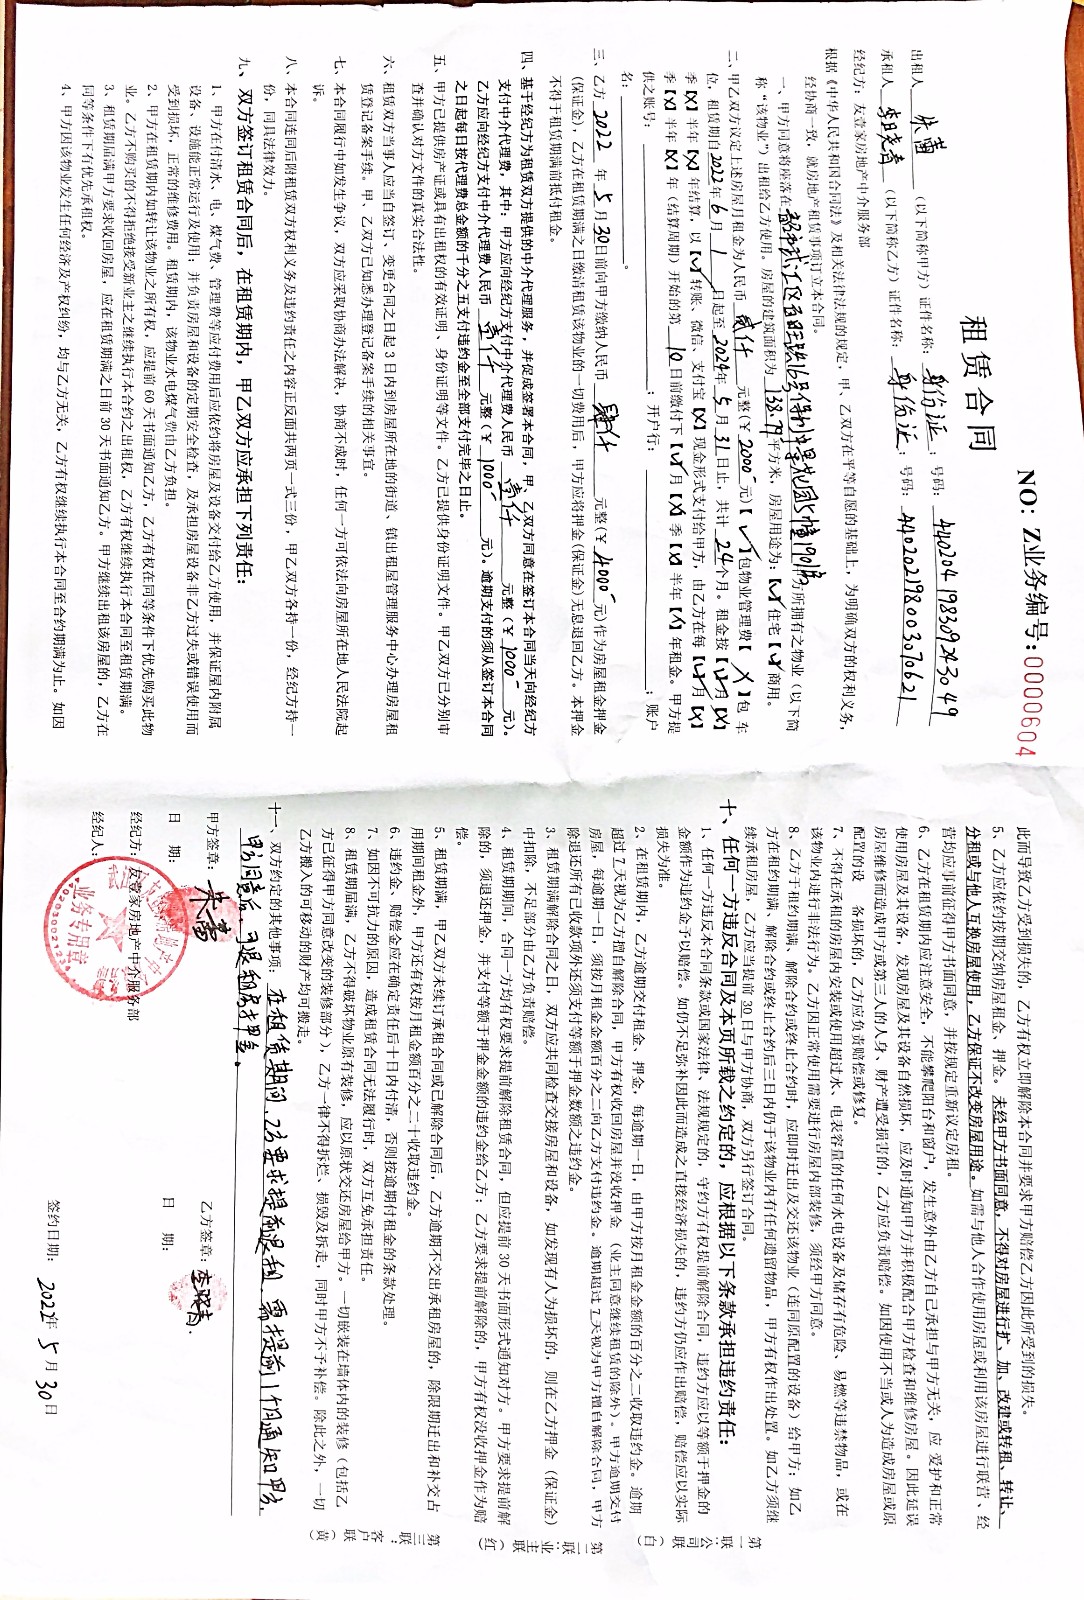 NO: Z业务编号:0000604
租 赁 合 同
出租人 朱蕾 (以下简称甲方)证件名称: 身份证 号码: 440204198309243049
承租人 李晓青 (以下简称乙方)证件名称: 身份证 号码: 440202198003070621
经纪方:友壹家房地产中介服务部
根据《中华人民共和国合同法》及相关法律法规的规定,甲、乙双方在平等自愿的基础上,为明确双方的权利义务,
经协商一致,就房地产租赁事项订立本合同。
一、甲方同意将座落在 韶关市武江区百旺路16号保利中景花园5幢1901房 为所拥有之物业(以下简
称“该物业”)出租给乙方使用。房屋的建筑面积为 138.79 平方米,房屋用途为:【√】住宅【√】商用。
二、甲乙双方议定上述房屋月租金为人民币 贰仟 元整(¥ 2000- 元)【√】包物业管理费【X】包车
位,租赁期自2022年6月1日起至2024年5月31日止,共计24个月。租金按【√】月【X】
季【X】半年【X】年结算,以【√】转账、微信、支付宝【X】现金形式支付给甲方,由乙方在每【√】月【X】
季【X】半年【X】年(结算周期)开始的第 10 日前缴付下【√】月【X】季【X】半年【X】年租金。甲方提
供之账号: ;开户行: ;账户
名: 。
三、乙方 2022 年 5 月 30日前向甲方缴纳人民币 肆仟 元整(¥ 4000- 元)作为房屋租金押金
(保证金),乙方在租赁期满之日缴清租赁该物业的一切费用后,甲方应将押金(保证金)无息退回乙方。本押金
不得于租赁期满前抵付租金。
四、基于经纪方为租赁双方提供的中介代理服务,并促成签署本合同,甲、乙双方同意在签订本合同当天向经纪方
支付中介代理费,其中:甲方应向经纪方支付中介代理费人民币 壹仟 元整(¥ 1000- 元)。
乙方应向经纪方支付中介代理费人民币 壹仟 元整(¥ 1000- 元)。逾期支付的须从签订本合同
之日起每日按代理费总金额的千分之五支付违约金至全部支付完毕之日止。
五、甲方已提供房产证或具有出租权的有效证明、身份证明等文件。乙方已提供身份证明文件。甲乙双方已分别审
查并确认对方文件的真实合法性。
六、租赁双方当事人应当自签订、变更合同之日起3日内到房屋所在地的街道、镇出租屋管理服务中心办理房屋租
赁登记备案手续。甲、乙双方已知悉办理登记备案手续的相关事宜。
七、本合同履行中如发生争议,双方应采取协商办法解决,协商不成时,任何一方可依法向房屋所在地人民法院起
诉。
八、本合同连同后附租赁双方权利义务及违约责任之内容正反面共两页一式三份,甲乙双方各持一份,经纪方持一
份,同具法律效力。
九、双方签订租赁合同后,在租赁期内,甲乙双方应承担下列责任:
1、甲方在付清水、电、煤气费、管理费等应付费用后应依约将房屋及设备交付给乙方使用,并保证屋内附属
设备、设施能正常运行及使用;并负责房屋和设备的定期安全检查,及承担房屋设备非乙方过失或错误使用而
受到损坏,正常的维修费用。租赁期内,该物业水电煤气费由乙方负担。
2、甲方在租赁期内如转让该物业之所有权,应提前60天书面通知乙方,乙方有权在同等条件下优先购买此物
业。乙方不购买的不得拒绝接受新业主之继续执行本合约之出租权,乙方有权继续执行本合同至租赁期满。
3、租赁期届满甲方要求收回房屋,应在租赁期满之日前30天书面通知乙方。甲方继续出租该房屋的,乙方在
同等条件下有优先承租权。
4、甲方因该物业发生任何经济及产权纠纷,均与乙方无关,乙方有权继续执行本合同至合约期满为止。如因
此而导致乙方受到损失的,乙方有权立即解除本合同并要求甲方赔偿乙方因此所受到的损失。
5、乙方应依约按期交纳房屋租金、押金。未经甲方书面同意,不得对房屋进行扩、加、改建或转租、转让、
分租或与他人互换房屋使用,乙方保证不改变房屋用途。如需与他人合作使用房屋或利用该房屋进行联营、经
营均应事前征得甲方书面同意,并按规定重新议定房租。
6、乙方在租赁期内应注意安全,不能攀爬阳台和窗户,发生意外由乙方自己承担与甲方无关,应 爱护和正常
使用房屋及其设备,发现房屋及其设备自然损坏,应及时通知甲方并积极配合甲方检查和维修房屋。因此延误
房屋维修而造成甲方或第三人的人身、财产遭受损害的,乙方应负责赔偿。如因使用不当或人为造成房屋或原
配置的设 备损坏的,乙方应负责赔偿或修复。
7、不得在承租的房屋内安装或使用超过水、电表容量的任何水电设备及储存有危险、易燃等违禁物品,或在
该物业内进行非法行为。乙方因正常使用需要进行房屋内部装修,须经甲方同意。
8、乙方于租约期满,解除合约或终止合约时,应即时迁出及交还该物业(连同原配置的设备)给甲方;如乙
方在租约期满、解除合约或终止合约后三日内仍于该物业内有任何遗留物品,甲方有权作出处置。如乙方须继
续承租房屋,乙方应当提前30日与甲方协商,双方另行签订合同。
十、任何一方违反合同及本页所载之约定的,应根据以下条款承担违约责任:
1、任何一方违反本合同条款或国家法律、法规规定的,守约方有权提前解除合同,违约方应以等额于押金的
金额作为违约金予以赔偿。如仍不足弥补因此而造成之直接经济损失的,违约方仍应作出赔偿,赔偿应以实际
损失为准。
2、在租赁期内,乙方逾期交付租金、押金,每逾期一日,由甲方按月租金金额的百分之二收取违约金。逾期
超过7天视为乙方擅自解除合同,甲方有权收回房屋并没收押金(业主同意继续租赁的除外)。甲方逾期交付
房屋,每逾期一日,须按月租金金额百分之二向乙方支付违约金。逾期超过7天视为甲方擅自解除合同,甲方
除退还所有已收款项外还须支付等额于押金数额之违约金。
3、租赁期满解除合同之日,双方应共同检查交接房屋和设备,如发现有人为损坏的,则在乙方押金(保证金)
中扣除,不足部分由乙方负责赔偿。
4、租赁期期间,合同一方均有权要求提前解除租赁合同,但应提前30天书面形式通知对方。甲方要求提前解
除的,须退还押金,并支付等额于押金金额的违约金给乙方;乙方要求提前解除的,甲方有权没收押金作为赔
偿。
5、租赁期满,甲乙双方未续订承租合同或已解除合同后,乙方逾期不交出承租房屋的,除限期迁出和补交占
用期间租金外,甲方还有权按月租金额百分之二十收取违约金。
6、违约金、赔偿金应在确定责任后十日内付清,否则按逾期付租金的条款处理。
7、如因不可抗力的原因,造成租赁合同无法履行时,双方互免承担责任。
8、租赁期届满,乙方不得破坏物业原有装修,应以原状交还房屋给甲方。一切嵌装在墙体内的装修(包括乙
方已征得甲方同意改变的装修部分),乙方一律不得拆烂、损毁及拆走,同时甲方不予补偿。除此之外,一切
乙方搬入的可移动的财产均可搬走。
十一、双方约定的其他事项: 在租赁期间,乙方要求提前退租,需提前1个月通知甲方,
甲方同意后,可退租房押金。
甲方签章: 朱蕾 乙方签章: 李晓青.
日 期: 日 期:
经纪方:友壹家房地产中介服务部
经纪人: 签约日期: 2022年5月30日
业务专用章
第一联:公司联(白)
第二联:业主联(红)
第三联:客户联(黄)